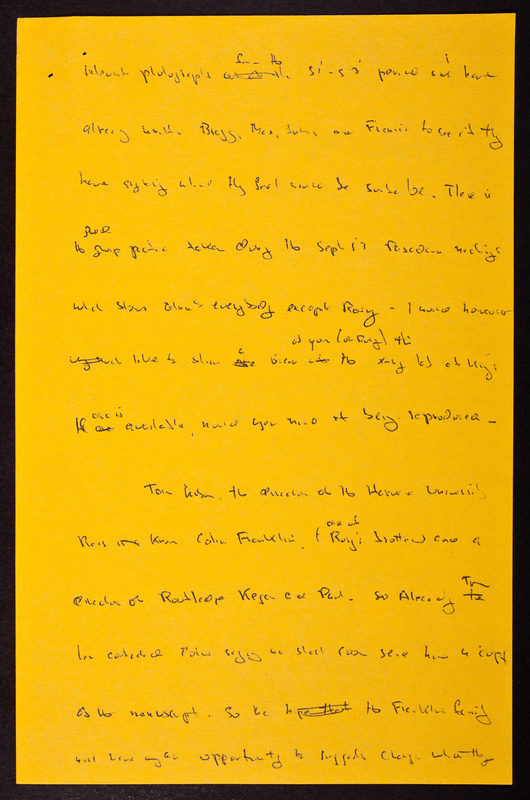 relevant photographs from the 51-53 period and I have
already written Bragg, Max, John, and Francis to see if they
have anything which they feel would be suitable. There is
the good group picture taken during the Sept 53 Pasadena meetings
which shows almost everybody except Rosy - I would however
like to show a view of you (or Rosy) in the x-ray lab at King's
If one is available, would you mind it being reproduced -
Tom Wilson, the director of the Harvard University
Press knows Colin Franklin, (one of Rosy's brothers) and a
director of Routledge Kegan and Paul. So Already Tom
has contacted Colin saying we shall soon send him a copy
of the manuscript. So the Franklin family
will have ample opportunity to suggest changes what they